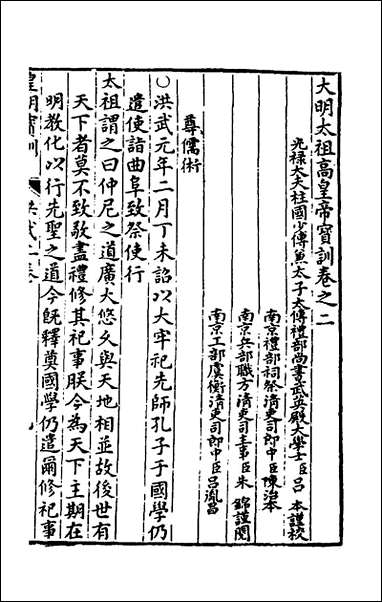 大明太祖高皇帝寶訓卷之二
光禄大夫柱國少傅兼太子太傅禮部尚書武英殿大學士臣呂 本謹校
南京禮部祠祭清吏司郎中臣陳治本
南京兵部職方清吏司主事臣朱 錦謹閱
南京工部虞衡清吏司郎中臣呂胤昌
尊儒術
○洪武元年二月丁未詔以大牢祀先師孔子于國學仍
遣使詣曲阜致祭使行
太祖謂之曰仲尼之道廣大悠久與天地相並故後世有
天下者莫不致敬盡禮修其祀事朕今為天下主期在
明教化以行先聖之道今旣釋奠國學仍遣爾修祀事
皇明寶訓